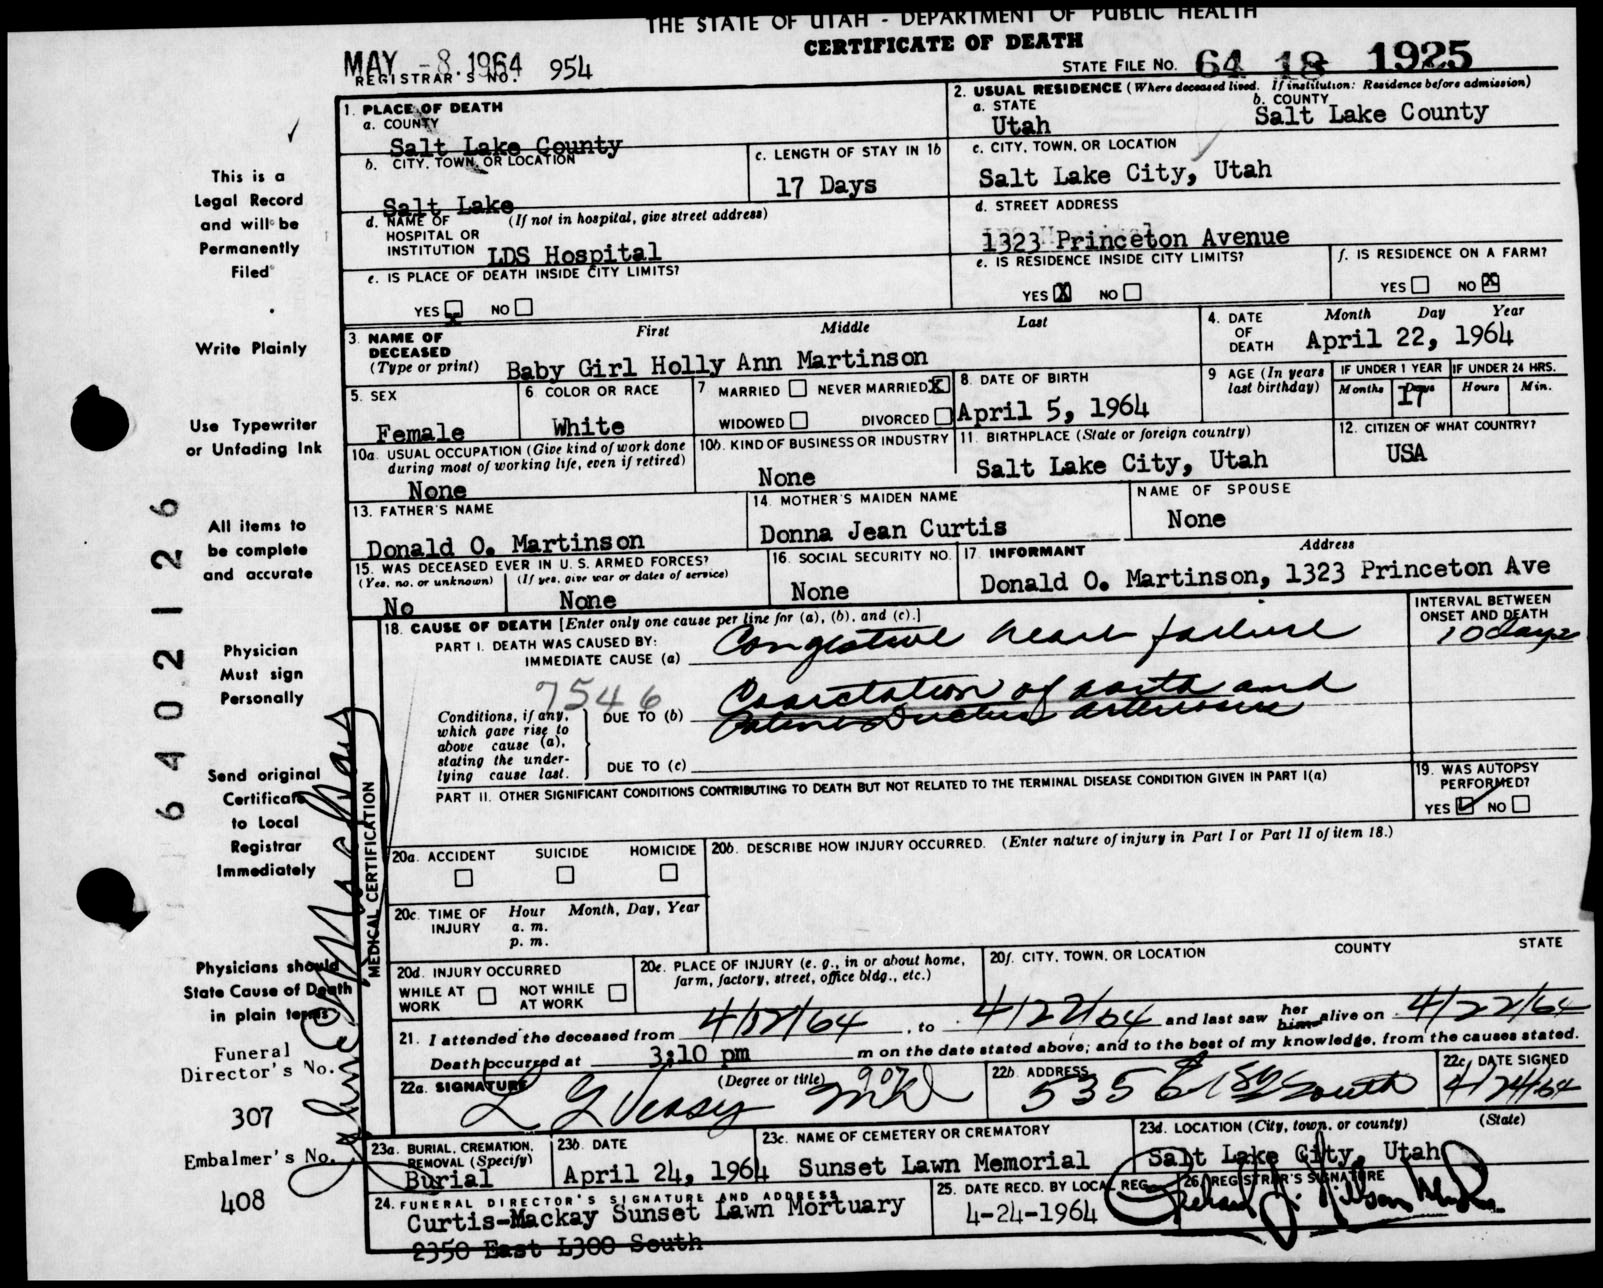 THE STATE OF UTAH - DEPARTMENT OF PUBLIC HEALTH
CERTIFICATE OF DEATH
MAY -8.1964
REGISTRAR'S NO. 954
STATE FILE NO. 64 18 1925
1. PLACE OF DEATH
a. COUNTY
Salt Lake County
2. USUAL RESIDENCE (Where deceased lived. If institution: Residence before admission)
a. STATE
Utah
b. COUNTY
Salt Lake County
b. CITY, TOWN, OR LOCATION
Salt Lake
c. LENGTH OF STAY IN 1b
17 Days
c. CITY, TOWN, OR LOCATION
Salt Lake City, Utah
d. NAME OF HOSPITAL OR INSTITUTION
(If not in hospital, give street address)
LDS Hospital
d. STREET ADDRESS
1323 Princeton Avenue
e. IS PLACE OF DEATH INSIDE CITY LIMITS?
YES X NO
e. IS RESIDENCE INSIDE CITY LIMITS?
YES X NO
f. IS RESIDENCE ON A FARM?
YES NO X
3. NAME OF DECEASED (Type or print)
First Middle Last
Baby Girl Holly Ann Martinson
4. DATE OF DEATH
Month Day Year
April 22, 1964
5. SEX
Female
6. COLOR OR RACE
White
7. MARRIED NEVER MARRIED X
WIDOWED DIVORCED
8. DATE OF BIRTH
April 5, 1964
9 AGE (In years last birthday)
IF UNDER 1 YEAR
Months Days
17
IF UNDER 24 HRS.
Hours Min.
10a. USUAL OCCUPATION (Give kind of work done during most of working life, even if retired)
None
10b. KIND OF BUSINESS OR INDUSTRY
None
11. BIRTHPLACE (State or foreign country)
Salt Lake City, Utah
12. CITIZEN OF WHAT COUNTRY?
USA
13. FATHER'S NAME
Donald O. Martinson
14. MOTHER'S MAIDEN NAME
Donna Jean Curtis
NAME OF SPOUSE
None
15. WAS DECEASED EVER IN U. S. ARMED FORCES?
(Yes, no, or unknown)
No
(If yes, give war or dates of service)
None
16. SOCIAL SECURITY NO.
None
17. INFORMANT Address
Donald O. Martinson, 1323 Princeton Ave
MEDICAL CERTIFICATION
18. CAUSE OF DEATH [Enter only one cause per line for (a), (b), and (c).]
INTERVAL BETWEEN ONSET AND DEATH
PART I. DEATH WAS CAUSED BY:
IMMEDIATE CAUSE (a) Congestive heart failure 10 days
7546
Conditions, if any, which gave rise to above cause (a), stating the underlying cause last.
DUE TO (b) Coarctation of aorta and
Patent Ductus arteriosus
DUE TO (c)
PART II. OTHER SIGNIFICANT CONDITIONS CONTRIBUTING TO DEATH BUT NOT RELATED TO THE TERMINAL DISEASE CONDITION GIVEN IN PART I(a)
19. WAS AUTOPSY PERFORMED?
YES ✓ NO
20a. ACCIDENT SUICIDE HOMICIDE
20b. DESCRIBE HOW INJURY OCCURRED. (Enter nature of injury in Part I or Part II of item 18.)
20c. TIME OF INJURY
Hour Month, Day, Year
a. m.
p. m.
20d. INJURY OCCURRED
WHILE AT WORK NOT WHILE AT WORK
20e. PLACE OF INJURY (e. g., in or about home, farm, factory, street, office bldg., etc.)
20f. CITY, TOWN, OR LOCATION COUNTY STATE
21. I attended the deceased from 4/12/64, to 4/22/64 and last saw her him alive on 4/22/64
Death occurred at 3:10 pm m on the date stated above; and to the best of my knowledge, from the causes stated.
22a. SIGNATURE (Degree or title)
L G Veasy MD
22b. ADDRESS
535 E 1st South
22c. DATE SIGNED
4/24/64
23a. BURIAL, CREMATION, REMOVAL (Specify)
Burial
23b. DATE
April 24, 1964
23c. NAME OF CEMETERY OR CREMATORY
Sunset Lawn Memorial
23d. LOCATION (City, town, or county) (State)
Salt Lake City, Utah
24. FUNERAL DIRECTOR'S SIGNATURE AND ADDRESS
Curtis-Mackay Sunset Lawn Mortuary
2350 East L300 South
25. DATE RECD. BY LOCAL REG.
4-24-1964
26. REGISTRAR'S SIGNATURE
This is a
Legal Record
and will be
Permanently
Filed
Write Plainly
Use Typewriter
or Unfading Ink
All items to
be complete
and accurate
Physician
Must sign
Personally
Send original
Certificate
to Local
Registrar
Immediately
Physicians should
State Cause of Death
in plain terms
Funeral
Director's No.
307
Embalmer's No.
408
6402126